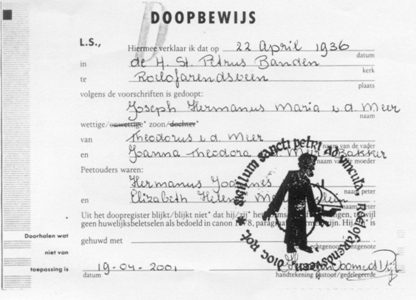 DOOPBEWIJS
L.S., Hiermee verklaar ik dat op 22 April 1936
datum
in de H. St. Petrus Banden
kerk
te Roelofarendsveen
plaats
volgens de voorschriften is gedoopt:
Joseph Hermanus Maria v.d. Meer
naam
wettige/onwettige* zoon/dochter*
van Theodorus v.d. Meer
naam van de vader
en Joanna Theodora Bakker
naam van de moeder
Peetouders waren:
Hermanus
naam peter
en Elizabeth Helena
naam meter
Uit het doopregister blijkt/blijkt niet* dat hij/zij*
geen huwelijksbeletselen als bedoeld in canon 1078, paragraaf
gehuwd met
Doorhalen wat
niet van
toepassing is
19-04-2001
datum
handtekening pastoor/gedelegeerde
sigillum sancti petri ad vincula. Roelofarendsveen dioc Rot.